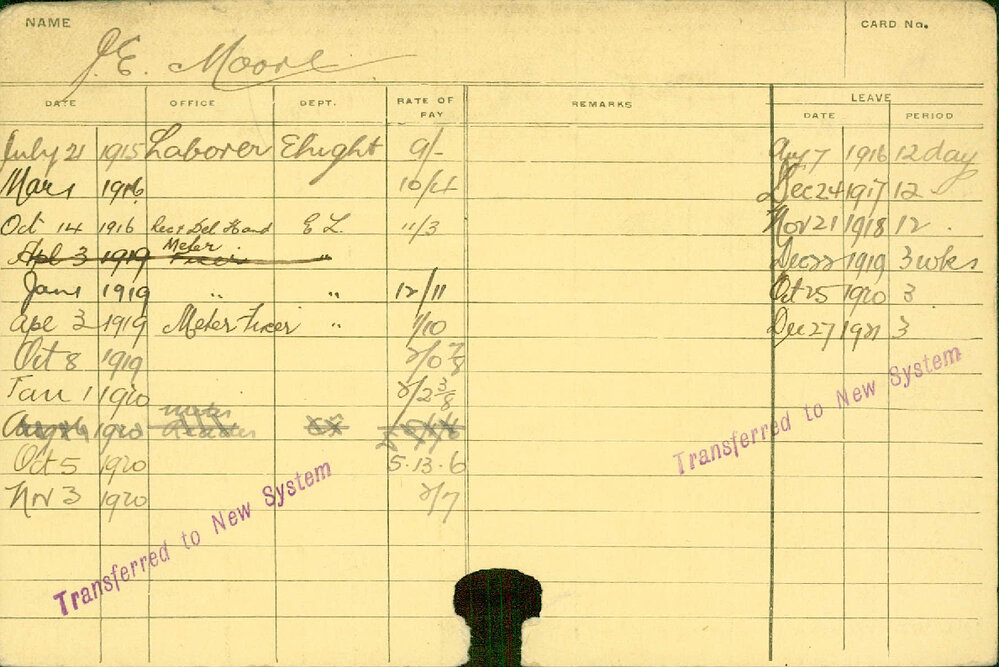 NAME
CARD No.
J.E. Moore
DATE OFFICE DEPT. RATE OF PAY REMARKS LEAVE
DATE PERIOD
July 21 1915 Laborer Elight 9/- Aug 7 1916 12 day
Mar 1 1916 10/4 Dec 24 1917 12
Oct 14 1916 Rec & Del Hand E L. 11/3 Nov 21 1918 12.
Apl 3 1919 Meter Fixer " Dec 22 1919 3 wks
Jan 1 1919 " " 12/11 Oct 25 1920 3
Apl 3 1919 Meter Fixer " 1/10 Dec 27 1921 3
Oct 8 1919 2/0 7/8
Jan 1 1920 2/2 3/8
1920 Meter Reader
Oct 5 1920 5.13.6
Nov 3 1920 2/7
Transferred to New System
Transferred to New System